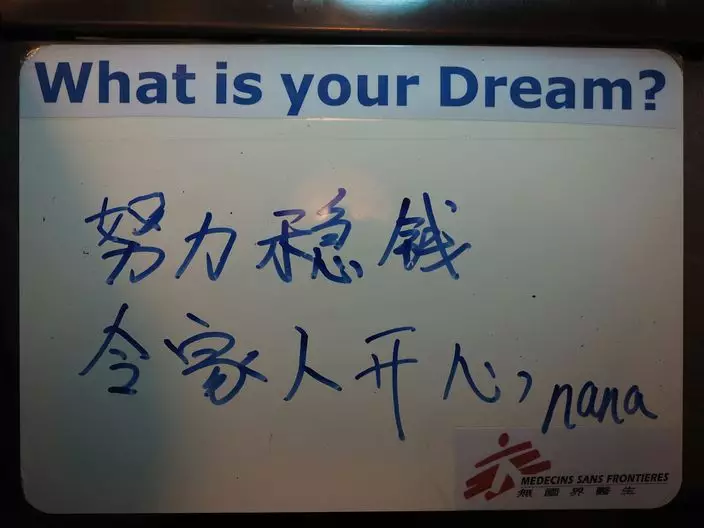 What is your Dream?
努力稳钱
令家人开心,
nana
MEDECINS SANS FRONTIERES
無國界醫生